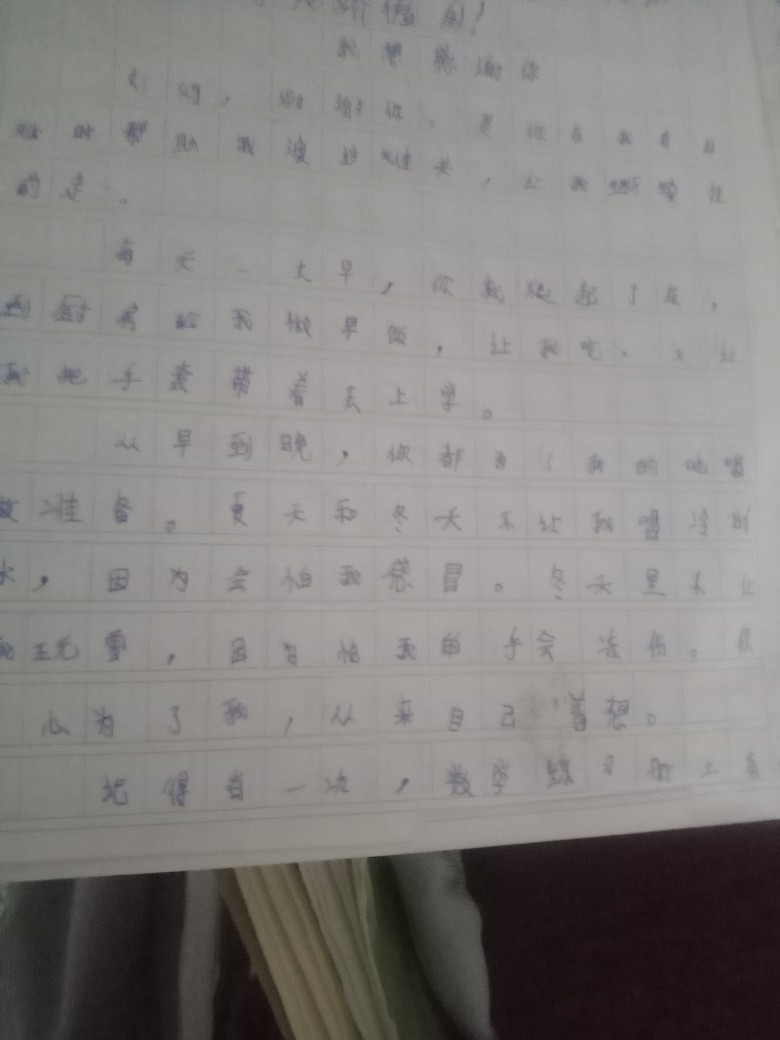 我要感谢你
妈,谢谢你。是你在我有困
难时帮助我渡过难关,让我
的走。
每天一大早,你就爬起了床,
到厨房给我做早饭,让我吃。又让
我把手套带着去上学。
从早到晚,你都为了我的吃喝
做准备。夏天和冬天不让我喝冷的
水,因为会怕我感冒。冬天里不让
我玩雪,因为怕我的手会冻伤。
心为了我,从来自己着想。
记得有一次,数学练习册上有